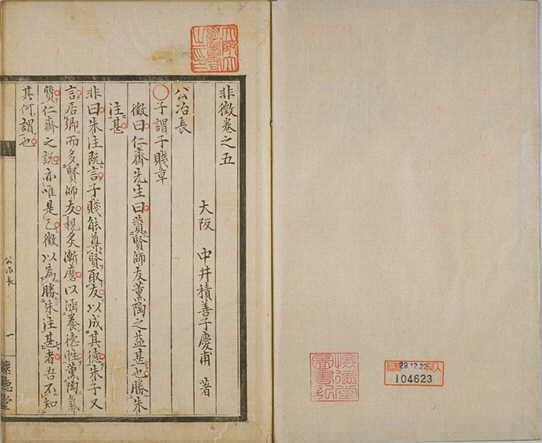 非徵卷之五
大阪 中井積善子慶甫 著
公冶長
〇子謂子賤章
徵曰仁齋先生曰賢師友薰陶之益甚也勝朱
注甚
非曰朱注既言子賤能尊賢取友以成其德朱子又
言居鄉而多賢師友親炙漸磨以涵養德性薰陶氣
質仁齋之説亦唯是已徵以為勝朱注甚者吾不知
其何謂也
公冶長
一
懷德堂
22.12.22
104623